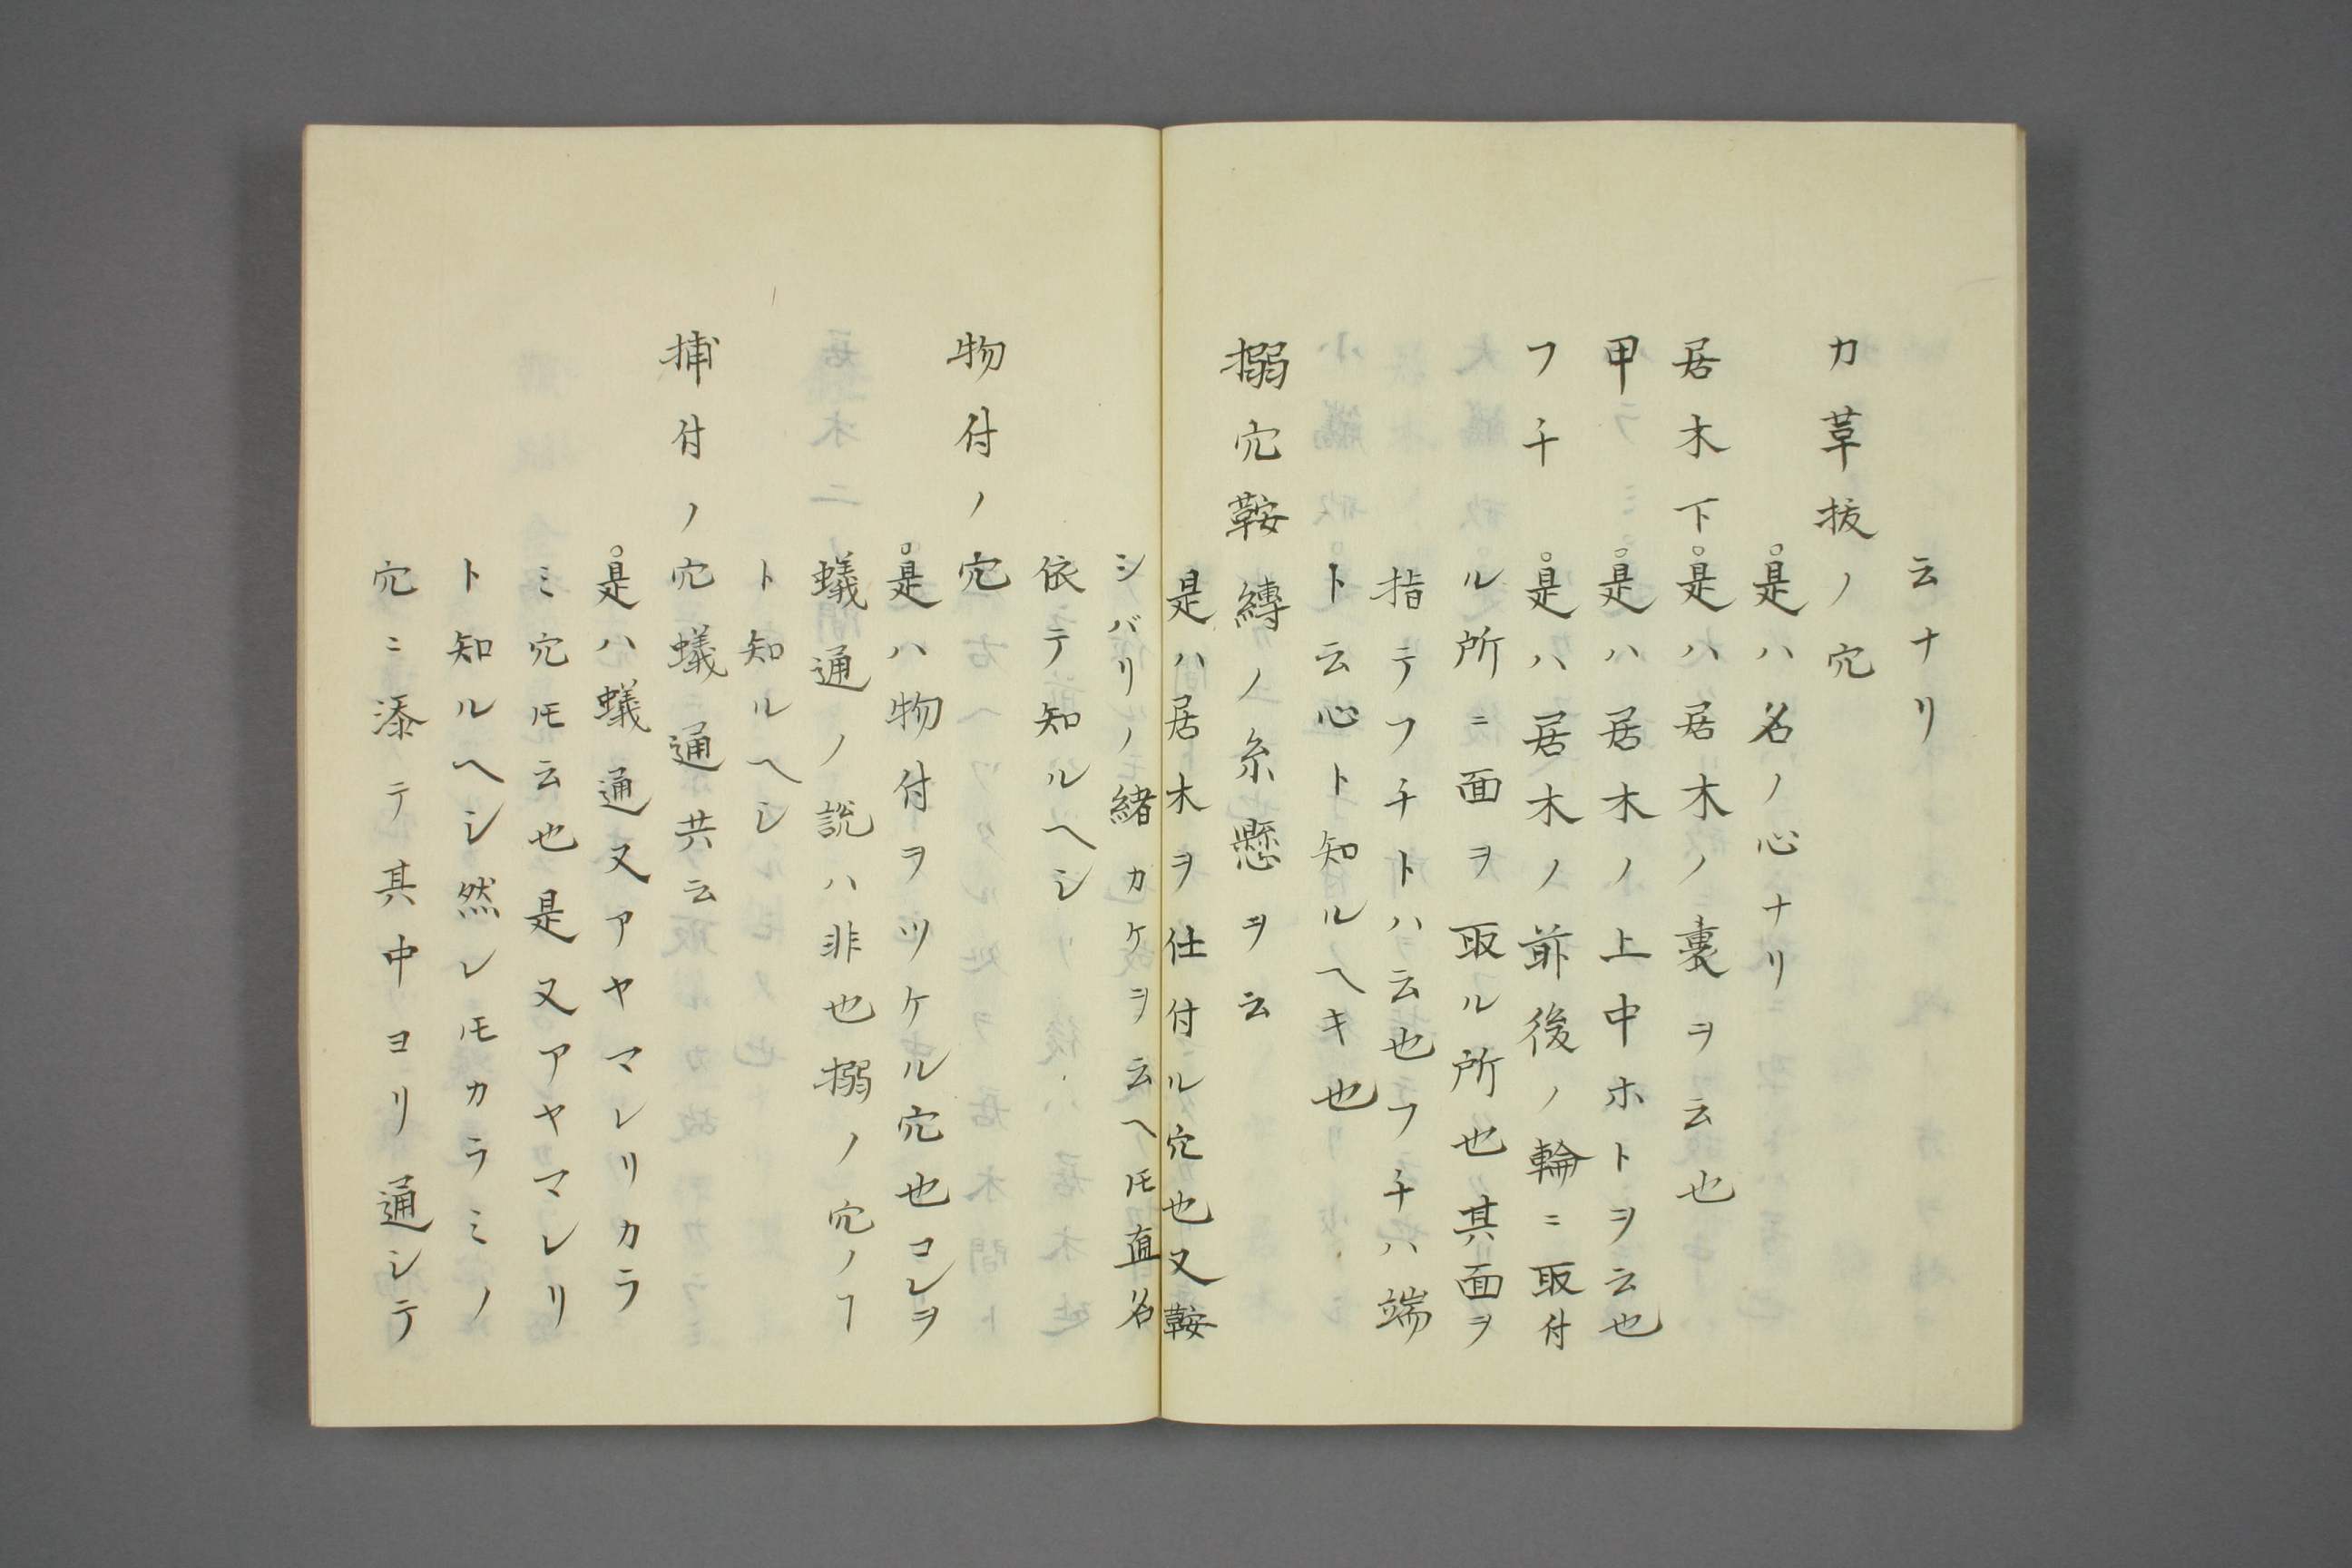 云ナリ
カ草拔ノ穴
。是ハ名ノ心ナリ
居木下。是ハ居木ノ裏ヲ云也
甲。是ハ居木ノ上中ホトヲ云也
フチ。是ハ居木ノ前後ノ輪ニ取付
ル所ニ面ヲ取ル所也其面ヲ
指テフチトハ云也フチハ端
ト云心ト知ルヘキ也
搦穴鞍縛ノ糸懸ヲ云
是ハ居木ヲ仕付ル穴也又鞍
シバリノ緒カケヲ云ヘ𪜈直名
依テ知ルヘシ
物付ノ穴
。是ハ物付ヲツケル穴也コレヲ
蟻通ノ説ハ非也搦ノ穴ノヿ
ト知ルヘシ
捕付ノ穴蟻通共云
。是ハ蟻通又アヤマレリカラ
ミ穴𪜈云也是又アヤマレリ
ト知ルヘシ然レ𪜈カラミノ
穴ニ添テ其中ヨリ通シテ